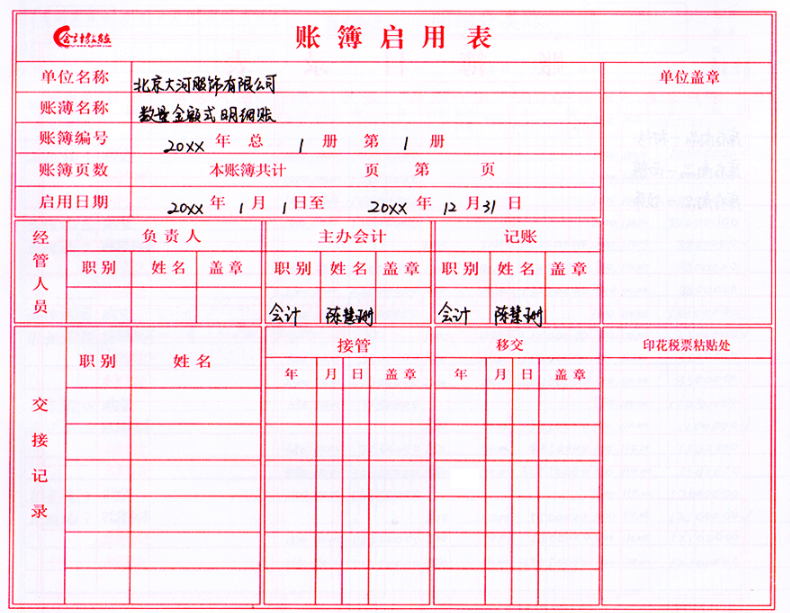 会计教练
账簿启用表
单位名称 北京大河服饰有限公司 单位盖章
账薄名称 数量金额式明细账
账簿编号 20XX 年 总 1 册 第 1 册
账簿页数 本账簿共计 页 第 页
启用日期 20XX 年 1 月 1 日至 20XX 年 12 月 31 日
经管人员 负责人 主办会计 记账
职别 姓名 盖章 职别 姓名 盖章 职别 姓名 盖章
会计 陈慧珊 会计 陈慧珊
交接记录 职别 姓名 接管 移交 印花税票粘贴处
年 月 日 盖章 年 月 日 盖章